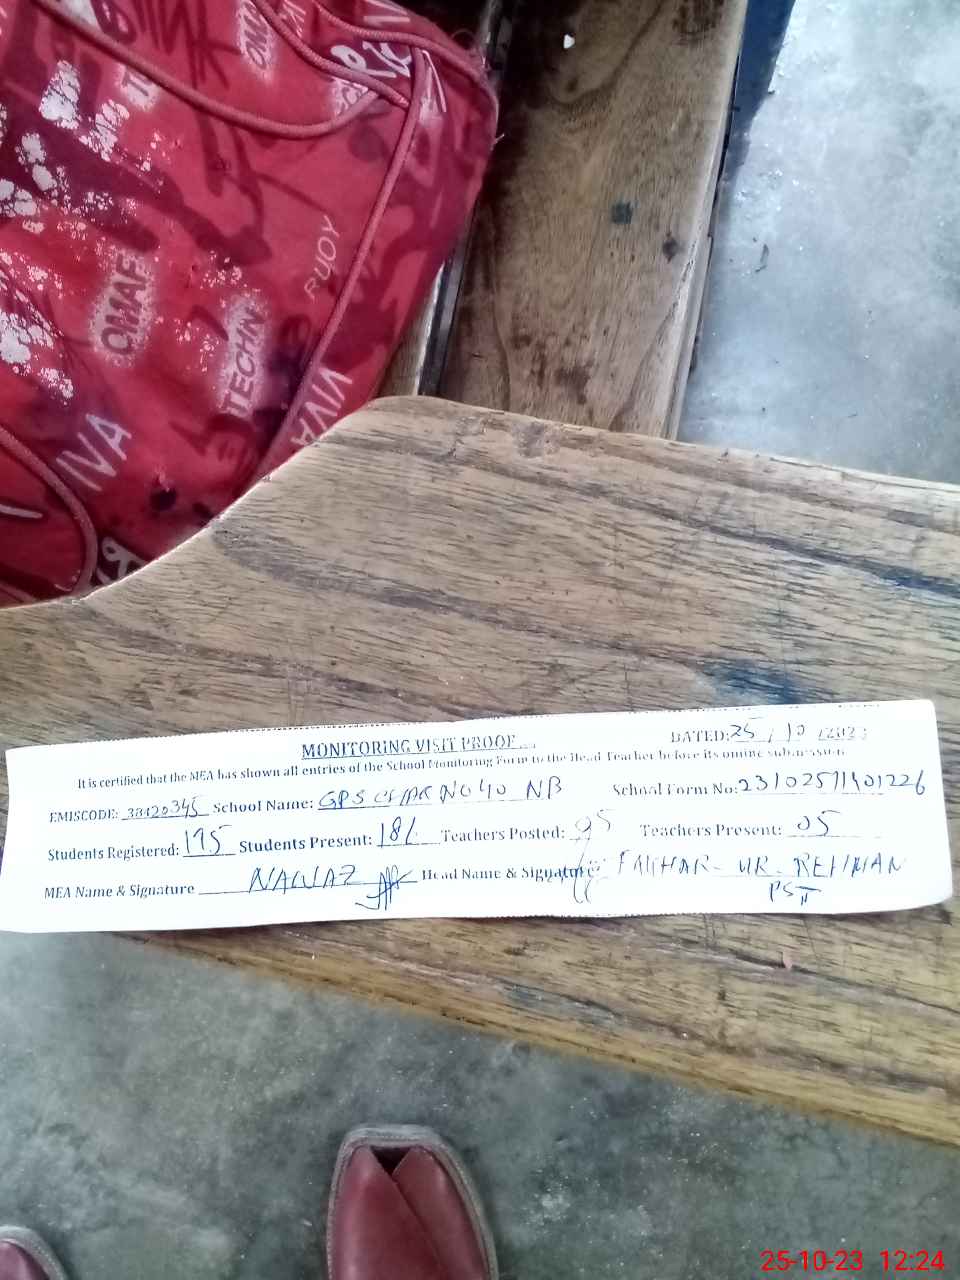 OMAF
RUOY
TECHN
IVA
MONITORING VISIT PROOF
DATED: 25 / 10 /2023
It is certified that the MEA has shown all entries of the School Monitoring Form to the Head Teacher before its online submission.
EMISCODE: 38420345 School Name: GPS CHAK NO 40 NB School Form No: 23102571401226
Students Registered: 195 Students Present: 181 Teachers Posted: 05 Teachers Present: 05
MEA Name & Signature NAWAZ Head Name & Signature FAKHAR-UR-REHMAN
PST
25-10-23 12:24